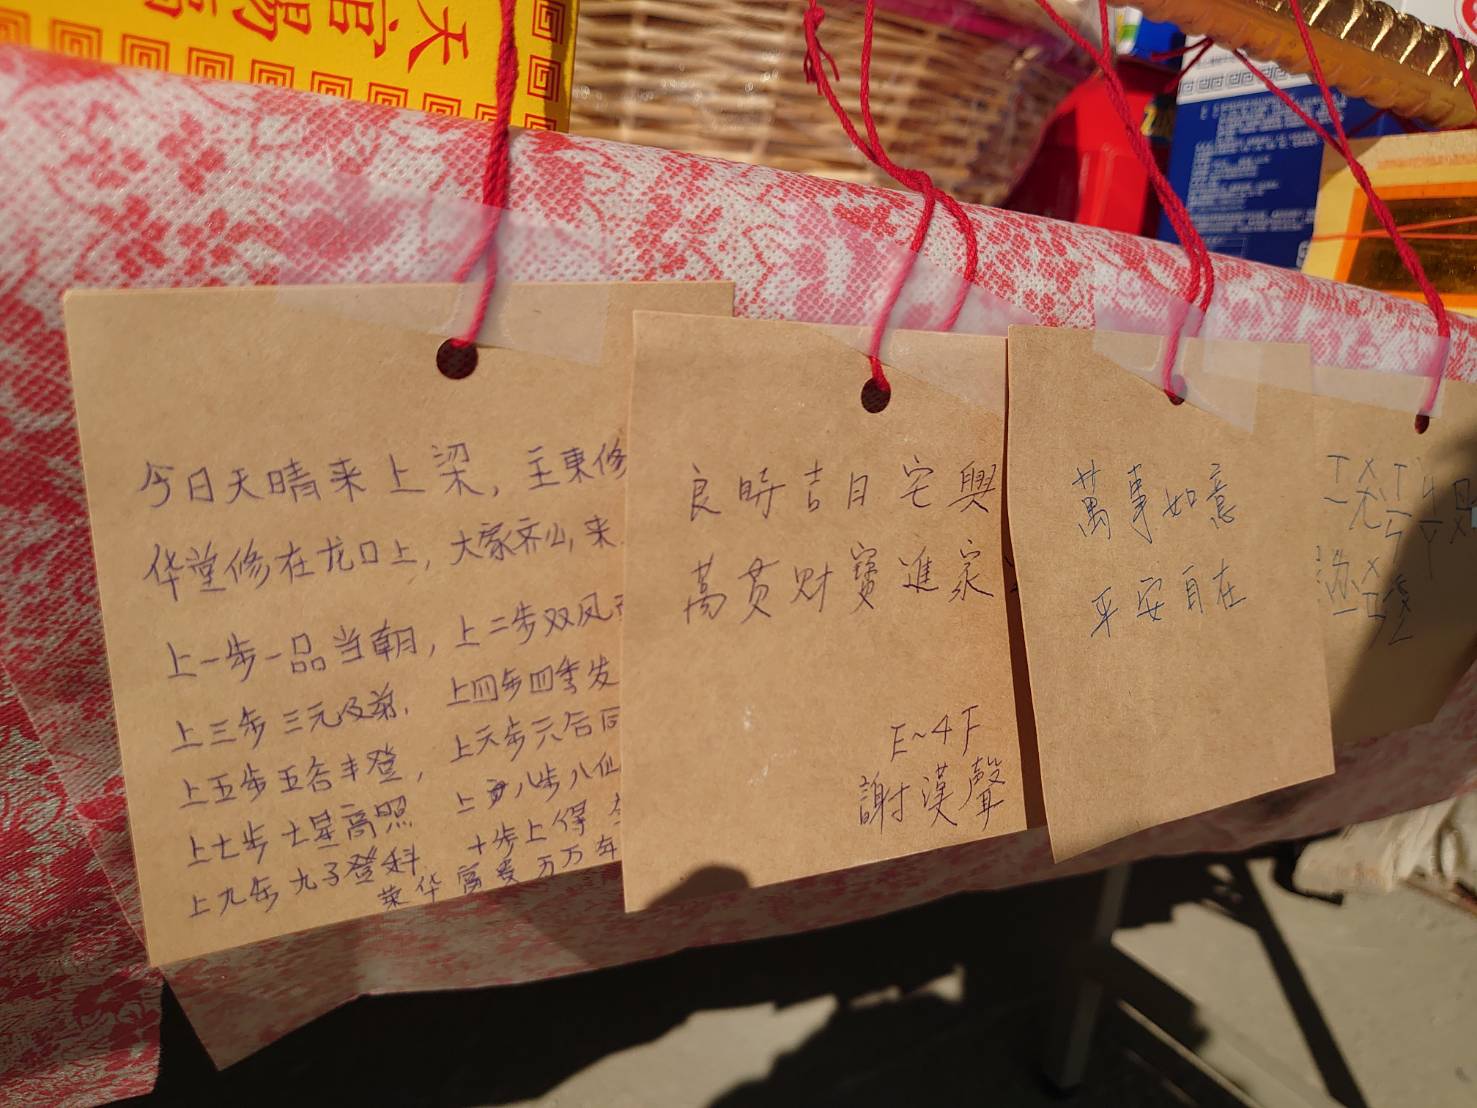 天官賜福
今日天晴来上梁，主東修
华堂修在龙口上，大家齐心来
上一步一品当朝，上二步双凤
上三步三元及第，上四步四季发
上五步五谷丰登，上六步六合同
上七步七星高照 上八步八仙
上九步九子登科 十步上得
荣华富贵万万年
良時吉日宅興
萬貫财寶進家
E~4F
謝漢聲
萬事如意
平安自在